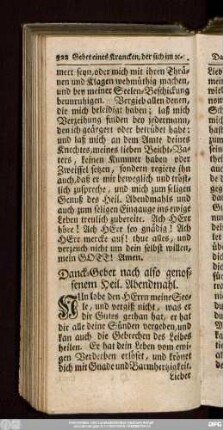 322 Gebet eines Krancken, der sich im re-
mert seyn, oder mich mit ihren Thrä-
nen und Klagen wehmüthig machen,
und bey meiner Seelen-Beschickung
beunruhigen. Vergieb allen denen,
die mich beleidiget haben; laß mich
Verzeihung finden bey jedermann,
den ich geärgert oder betrübet habe:
und laß mich an dem Amte deines
Knechtes, meines lieben Beicht-Va-
ters, keinen Kummer haben oder
Zweiffel setzen, sondern regiere ihn
auch, daß er mir beweglich und tröst-
lich zuspreche, und mich zum seligen
Genuß des Heil. Abendmahls und
auch zum seligen Eingange ins ewige
Leben treulich zubereite. Ach HErr
höre! Ach HErr sey gnädig! Ach
HErr mercke auf! thue alles, und
verzeuch nicht um dein selbst willen,
mein GOTT! Amen.
Danck-Gebet nach also genos-
senem Heil. Abendmahl.
NUn lobe den HErrn meine See-
le, und vergiß nicht, was er
dir Gutes gethan hat, er hat
dir alle deine Sünden vergeben, und
kan auch die Gebrechen des Leibes
heilen. Er hat dein Leben vom ewi-
gen Verderben erlöset, und krönet
dich mit Gnade und Barmhertzigkeit.
Lieber